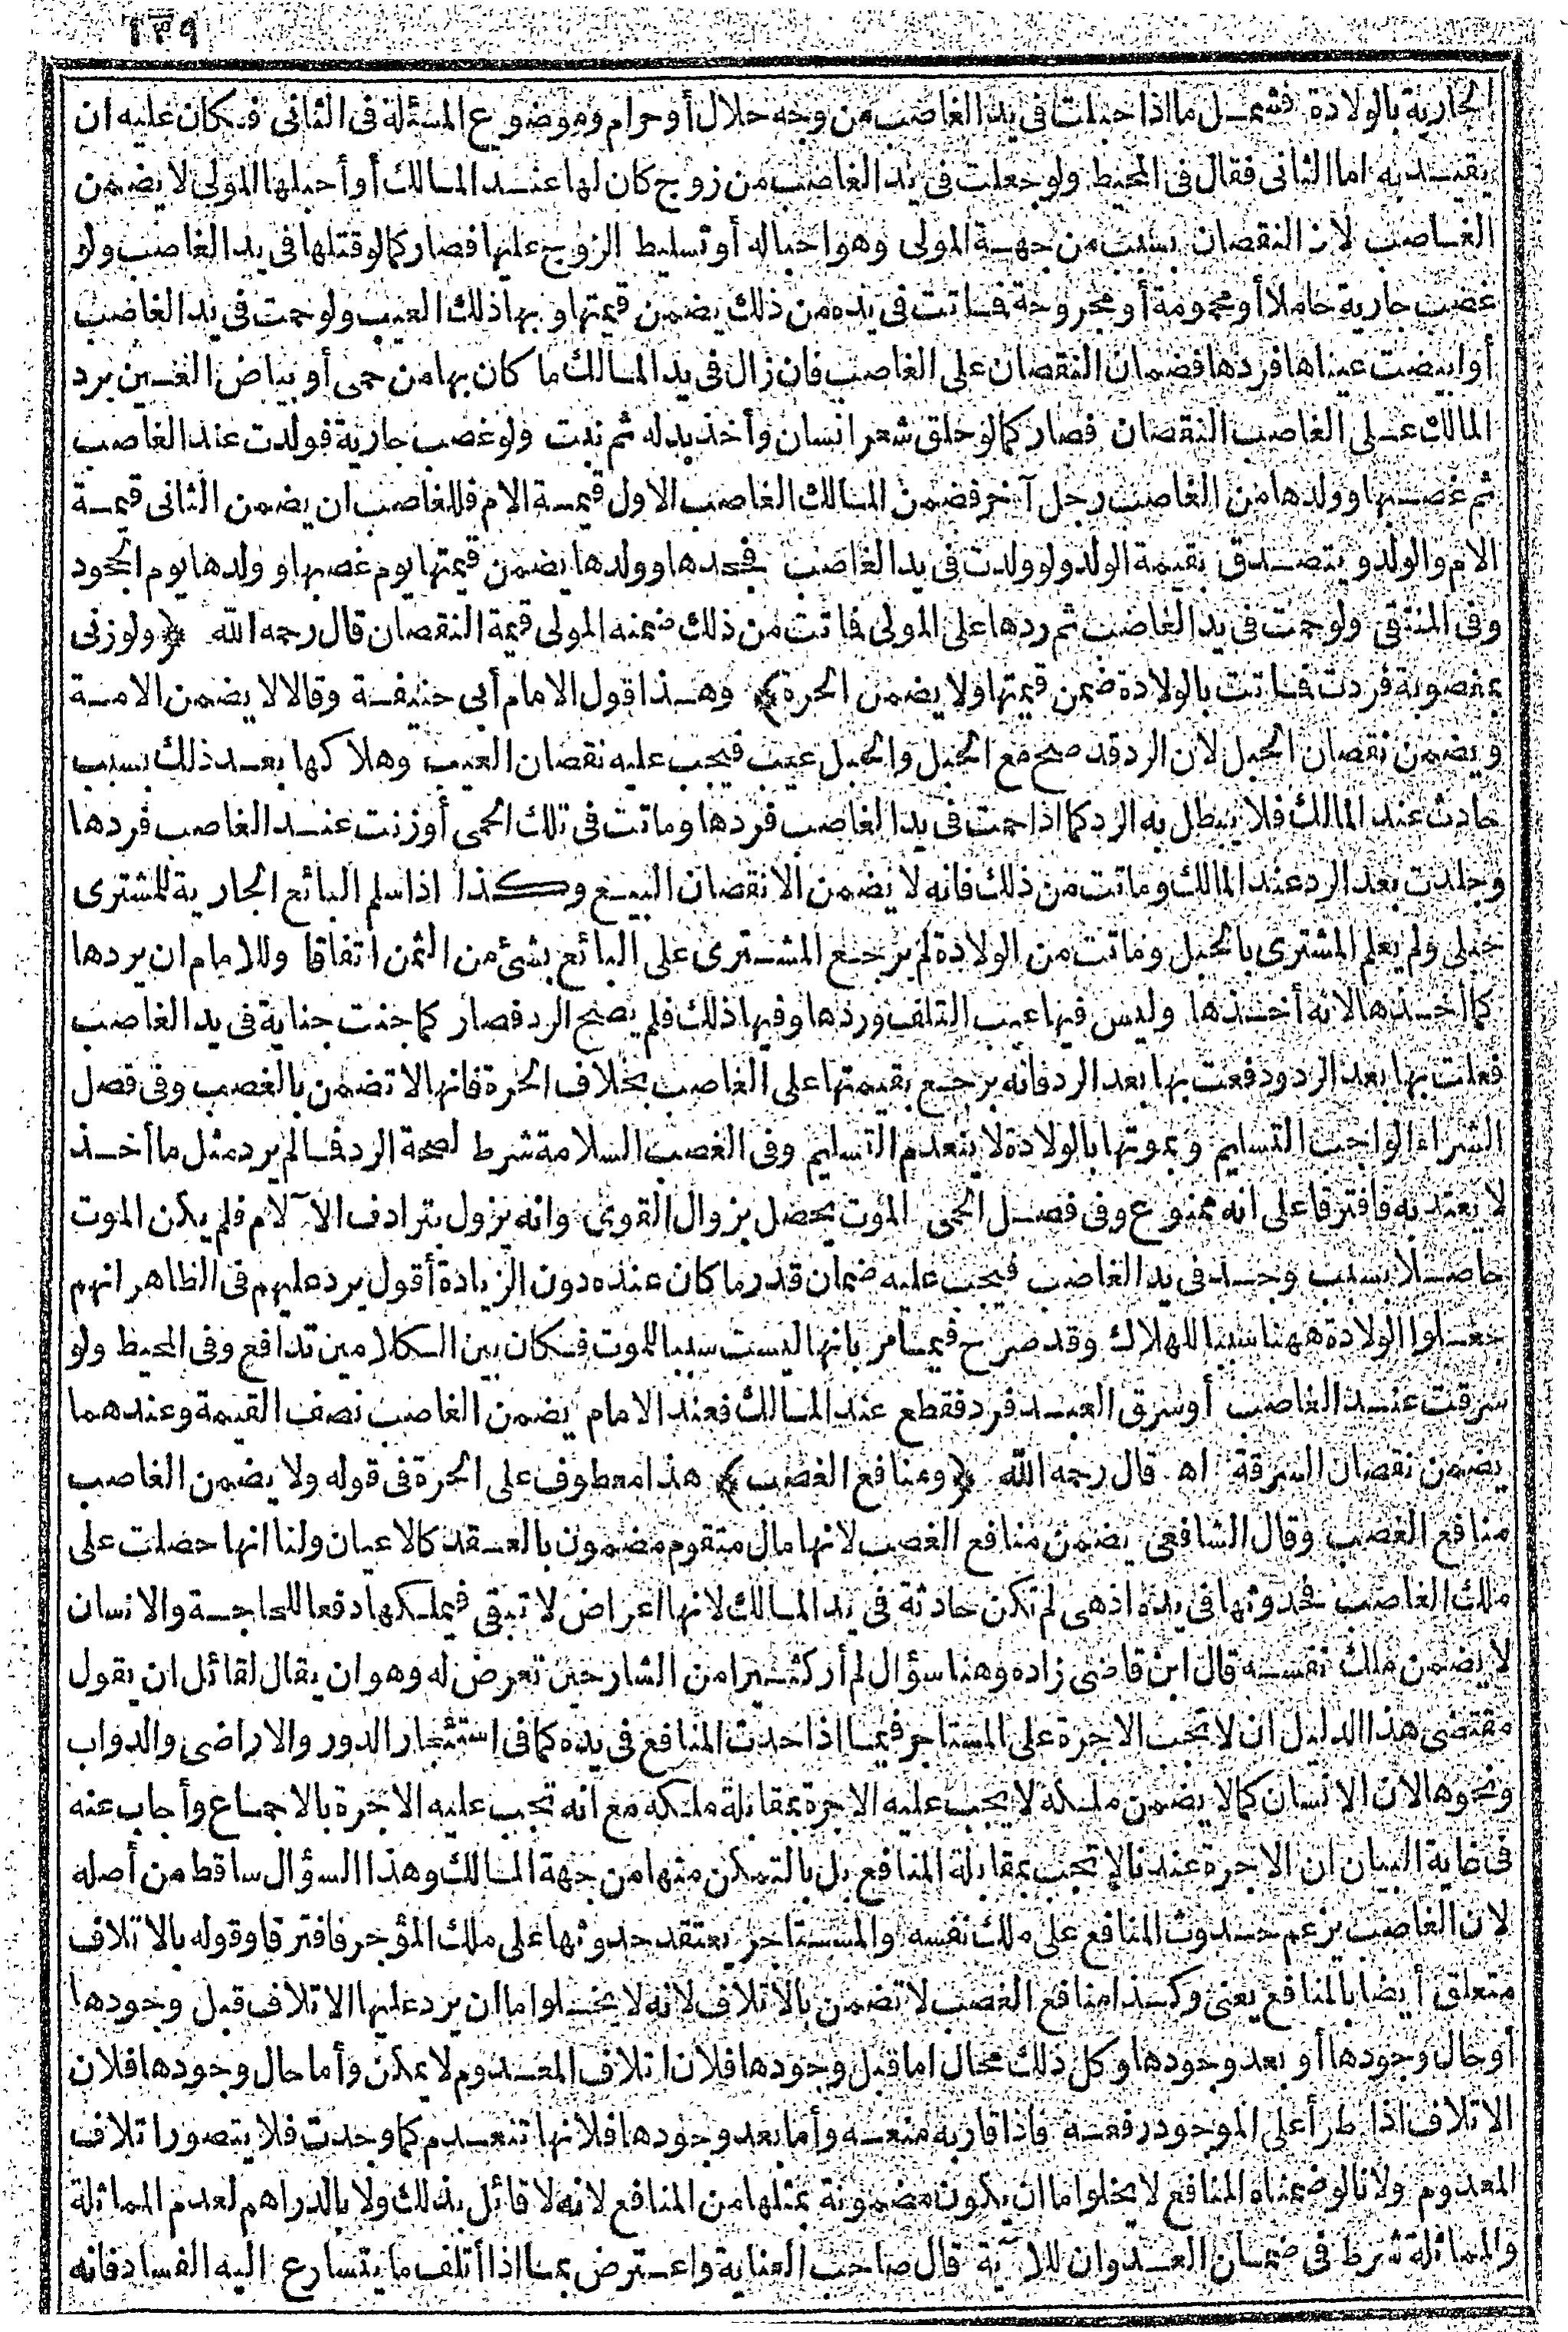 ١٣٩
الجارية بالولادة فشمل ما اذا حبلت فى يد الغاصب من وجه حلال أو حرام وموضوع المسئلة فى الثانى فكان عليه ان
يقيد به اما الثانى فقال فى المحيط ولو جعلت فى يد الغاصب من زوج كان لها عند المالك أو أحبلها المولى لا يضمن
الغاصب لان النقصان بسبب من جهة المولى وهو احباله أو تسليط الزوج عليها فصار كما لو قتلها فى يد الغاصب ولو
غصب جارية حاملا أو محمومة أو مجروحة فماتت فى يده من ذلك يضمن قيمتها وبها ذلك العيب ولو حمت فى يد الغاصب
أو ابيضت عيناها فردها فضمان النقصان على الغاصب فان زال فى يد المالك ما كان بها من حمى أو بياض العين يرد
المالك على الغاصب النقصان فصار كما لو حلق شعر انسان وأخذ بدله ثم نبت ولو غصب جارية فولدت عند الغاصب
ثم غصبها وولدها من الغاصب رجل آخر فضمن المالك الغاصب الاول قيمة الام فللغاصب ان يضمن الثانى قيمة
الام والولد ويتصدق بقيمة الولد ولو ولدت فى يد الغاصب فجحدها وولدها يضمن قيمتها يوم غصبها وولدها يوم الجحود
وفى المنتقى ولو حمت فى يد الغاصب ثم ردها على المولى فماتت من ذلك ضمنه المولى قيمة النقصان قال رحمه الله ﴿ولو زنى
بمغصوبة فردت فماتت بالولادة ضمن قيمتها ولا يضمن الحرة﴾ وهذا قول الامام أبى حنيفة وقالا لا يضمن الامة
ويضمن نقصان الحبل لان الرد قد صح مع الحبل والحبل عيب فيجب عليه نقصان العيب وهلاكها بعد ذلك بسبب
حادث عند المالك فلا يبطل به الرد كما اذا حمت فى يد الغاصب فردها وماتت فى تلك الحمى أو زنت عند الغاصب فردها
وجلدت بعد الرد عند المالك وماتت من ذلك فانه لا يضمن الا نقصان البيع وكذا اذا سلم البائع الجارية للمشترى
حبلى ولم يعلم المشترى بالحبل وماتت من الولادة لم يرجع المشترى على البائع بشئ من الثمن اتفاقا وللامام ان يردها
كما أخذها لانه أخذها وليس فيها عيب التلف وردها وفيها ذلك فلم يصح الرد فصار كما جنت جناية فى يد الغاصب
فعلت بها بعد الرد ودفعت بها بعد الرد فانه يرجع بقيمتها على الغاصب بخلاف الحرة فانها لا تضمن بالغصب وفى فصل
الشراء الواجب التسليم وبموتها بالولادة لا ينعدم التسليم وفى الغصب السلامة شرط لصحة الرد فما لم يرد مثل ما أخذ
لا يعتد به فافترقا على انه ممنوع وفى فصل الحمى الموت يحصل بزوال القوى وانه يزول بترادف الآلام فلم يكن الموت
حاصلا بسبب وجد فى يد الغاصب فيجب عليه ضمان قدر ما كان عنده دون الزيادة أقول يرد عليهم فى الظاهر انهم
جعلوا الولادة ههنا سببا للهلاك وقد صرح فيما مر بانها ليست سببا للموت فكان بين الكلامين تدافع وفى المحيط ولو
سرقت عند الغاصب أو سرق العبد فرد فقطع عند المالك فعند الامام يضمن الغاصب نصف القيمة وعندهما
يضمن نقصان السرقة اه قال رحمه الله ﴿ومنافع الغصب﴾ هذا معطوف على الحرة فى قوله ولا يضمن الغاصب
منافع الغصب وقال الشافعى يضمن منافع الغصب لانها مال متقوم مضمون بالعقد كالاعيان ولنا انها حصلت على
ملك الغاصب لحدوثها فى يده اذ هى لم تكن حادثة فى يد المالك لانها اعراض لا تبقى فيملكها دفعا للحاجة والانسان
لا يضمن ملك نفسه قال ابن قاضى زاده وهنا سؤال لم أر كثيرا من الشارحين تعرض له وهو ان يقال لقائل ان يقول
مقتضى هذا الدليل ان لا تجب الاجرة على المستاجر فيما اذا حدث المنافع فى يده كما فى استئجار الدور والاراضى والدواب
ونحوها لان الانسان كما لا يضمن ملكه لا يجب عليه الاجرة بمقابلة ملكه مع انه تجب عليه الاجرة بالاجماع وأجاب عنه
فى غاية البيان ان الاجرة عندنا لا تجب بمقابلة المنافع بل بالتمكن منها من جهة المالك وهذا السؤال ساقط من أصله
لان الغاصب يزعم حدوث المنافع على ملك نفسه والمستاجر يعتقد حدوثها على ملك المؤجر فافترقا وقوله بالاتلاف
متعلق أيضا بالمنافع يعنى وكذا منافع الغصب لا تضمن بالاتلاف لانه لا يخلو اما ان يرد عليها الاتلاف قبل وجودها
أو حال وجودها أو بعد وجودها وكل ذلك محال اما قبل وجودها فلان اتلاف المعدوم لا يمكن وأما حال وجودها فلان
الاتلاف اذا طرأ على الموجود رفعه فاذا قاربه منعه وأما بعد وجودها فلانها تنعدم كما وجدت فلا يتصور اتلاف
المعدوم ولانا لو ضمناه المنافع لا يخلو اما ان يكون مضمونة بمثلها من المنافع لانه لا قائل بذلك ولا بالدراهم لعدم المماثلة
والمماثلة شرط فى ضمان العدوان للآية قال صاحب العناية واعترض بما اذا أتلف ما يتسارع اليه الفساد فانه